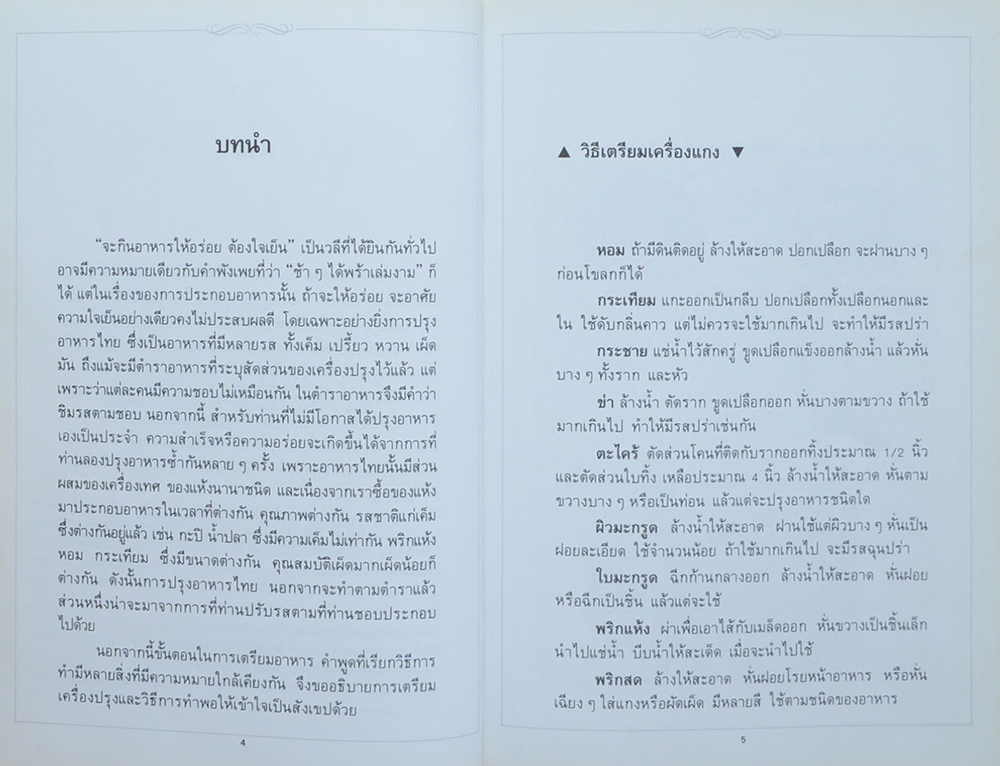 บทนำ
“จะกินอาหารให้อร่อย ต้องใจเย็น” เป็นวลีที่ได้ยินกันทั่วไป
อาจมีความหมายเดียวกับคำพังเพยที่ว่า “ช้า ๆ ได้พร้าเล่มงาม” ก็
ได้ แต่ในเรื่องของการประกอบอาหารนั้น ถ้าจะให้อร่อย จะอาศัย
ความใจเย็นอย่างเดียวคงไม่ประสบผลดี โดยเฉพาะอย่างยิ่งการปรุง
อาหารไทย ซึ่งเป็นอาหารที่มีหลายรส ทั้งเค็ม เปรี้ยว หวาน เผ็ด
มัน ถึงแม้จะมีตำราอาหารที่ระบุสัดส่วนของเครื่องปรุงไว้แล้ว แต่
เพราะว่าแต่ละคนมีความชอบไม่เหมือนกัน ในตำราอาหารจึงมีคำว่า
ชิมรสตามชอบ นอกจากนี้ สำหรับท่านที่ไม่มีโอกาสได้ปรุงอาหาร
เองเป็นประจำ ความสำเร็จหรือความอร่อยจะเกิดขึ้นได้จากการที่
ท่านลองปรุงอาหารซ้ำกันหลาย ๆ ครั้ง เพราะอาหารไทยนั้นมีส่วน
ผสมของเครื่องเทศ ของแห้งนานาชนิด และเนื่องจากเราซื้อของแห้ง
มาประกอบอาหารในเวลาที่ต่างกัน คุณภาพต่างกัน รสชาติแก่เค็ม
ซึ่งต่างกันอยู่แล้ว เช่น กะปิ น้ำปลา ซึ่งมีความเค็มไม่เท่ากัน พริกแห้ง
หอม กระเทียม ซึ่งมีขนาดต่างกัน คุณสมบัติเผ็ดมากเผ็ดน้อยก็
ต่างกัน ดังนั้นการปรุงอาหารไทย นอกจากจะทำตามตำราแล้ว
ส่วนหนึ่งน่าจะมาจากการที่ท่านปรับรสตามที่ท่านชอบประกอบ
ไปด้วย
นอกจากนี้ขั้นตอนในการเตรียมอาหาร คำพูดที่เรียกวิธีการ
ทำมีหลายสิ่งที่มีความหมายใกล้เคียงกัน จึงขออธิบายการเตรียม
เครื่องปรุงและวิธีการทำพอให้เข้าใจเป็นสังเขปด้วย
4
▲ วิธีเตรียมเครื่องแกง ▼
หอม ถ้ามีดินติดอยู่ ล้างให้สะอาด ปอกเปลือก จะฝานบาง ๆ
ก่อนโขลกก็ได้
กระเทียม แกะออกเป็นกลีบ ปอกเปลือกทั้งเปลือกนอกและ
ใน ใช้ดับกลิ่นคาว แต่ไม่ควรจะใช้มากเกินไป จะทำให้มีรสปร่า
กระชาย แช่น้ำไว้สักครู่ ขูดเปลือกแข็งออกล้างน้ำ แล้วหั่น
บาง ๆ ทั้งราก และหัว
ข่า ล้างน้ำ ตัดราก ขูดเปลือกออก หั่นบางตามขวาง ถ้าใช้
มากเกินไป ทำให้มีรสปร่าเช่นกัน
ตะไคร้ ตัดส่วนโคนที่ติดกับรากออกทิ้งประมาณ 1/2 นิ้ว
และตัดส่วนใบทิ้ง เหลือประมาณ 4 นิ้ว ล้างน้ำให้สะอาด หั่นตาม
ขวางบาง ๆ หรือเป็นท่อน แล้วแต่จะปรุงอาหารชนิดใด
ผิวมะกรูด ล้างน้ำให้สะอาด ฝานใช้แต่ผิวบาง ๆ หั่นเป็น
ฝอยละเอียด ใช้จำนวนน้อย ถ้าใช้มากเกินไป จะมีรสฉุนปร่า
ใบมะกรูด ฉีกก้านกลางออก ล้างน้ำให้สะอาด หั่นฝอย
หรือฉีกเป็นชิ้น แล้วแต่จะใช้
พริกแห้ง ผ่าเพื่อเอาไส้กับเมล็ดออก หั่นขวางเป็นชิ้นเล็ก
นำไปแช่น้ำ บีบน้ำให้สะเด็ด เมื่อจะนำไปใช้
พริกสด ล้างให้สะอาด หั่นฝอยโรยหน้าอาหาร หรือหั่น
เฉียง ๆ ใส่แกงหรือผัดเผ็ด มีหลายสี ใช้ตามชนิดของอาหาร
5